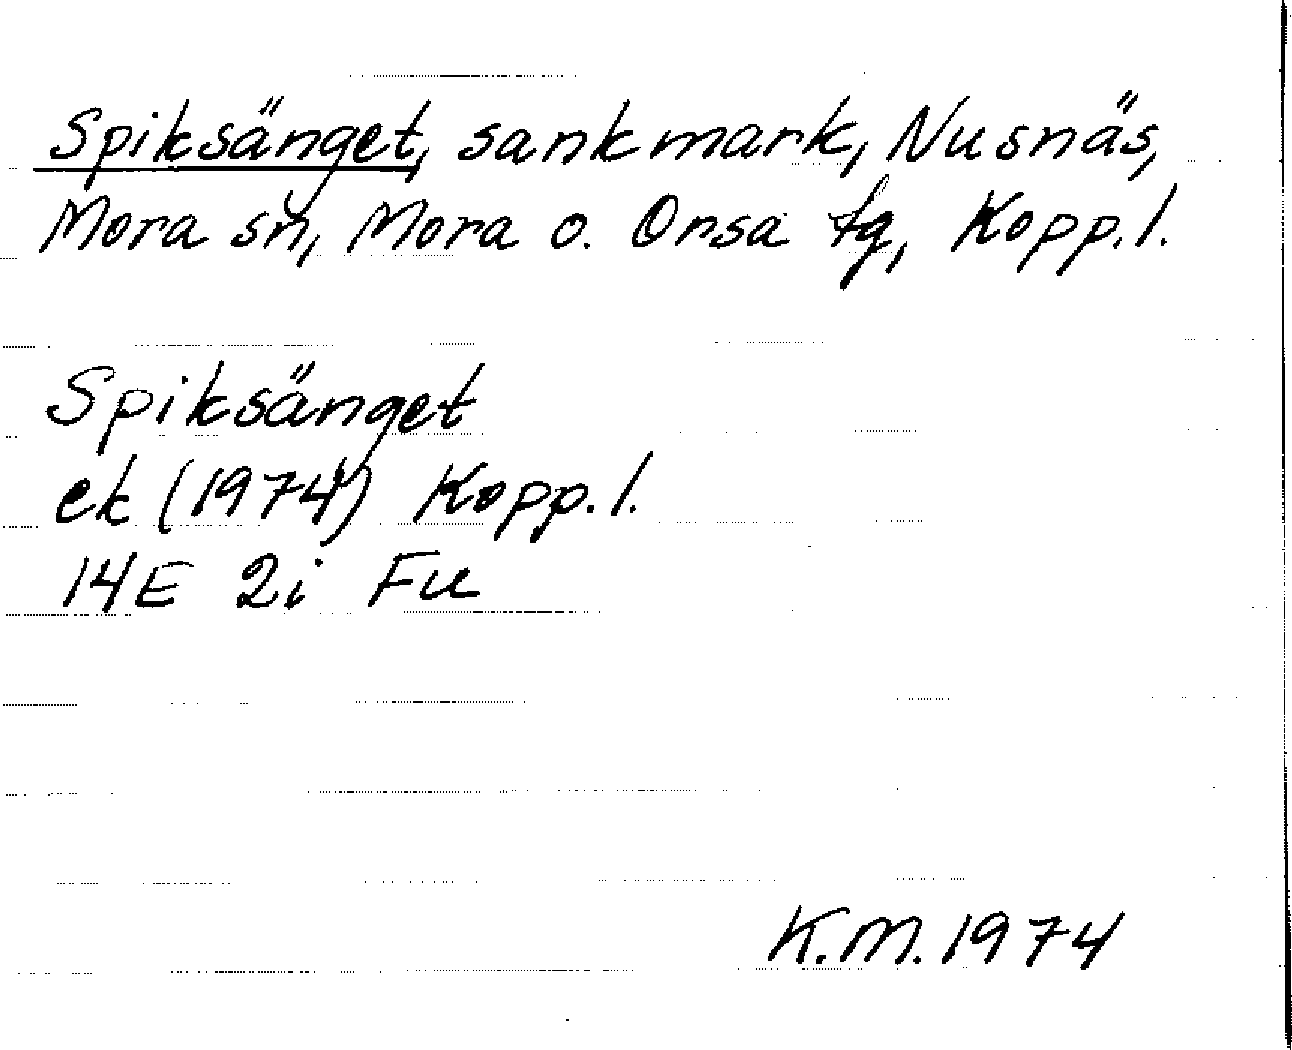 Spiksänget, sankmark, Nusnäs,
Mora sn, Mora o. Orsa tg, Kopp.l.
Spiksänget
ek (1974) Kopp.l.
14E 2i Fu
K.M. 1974